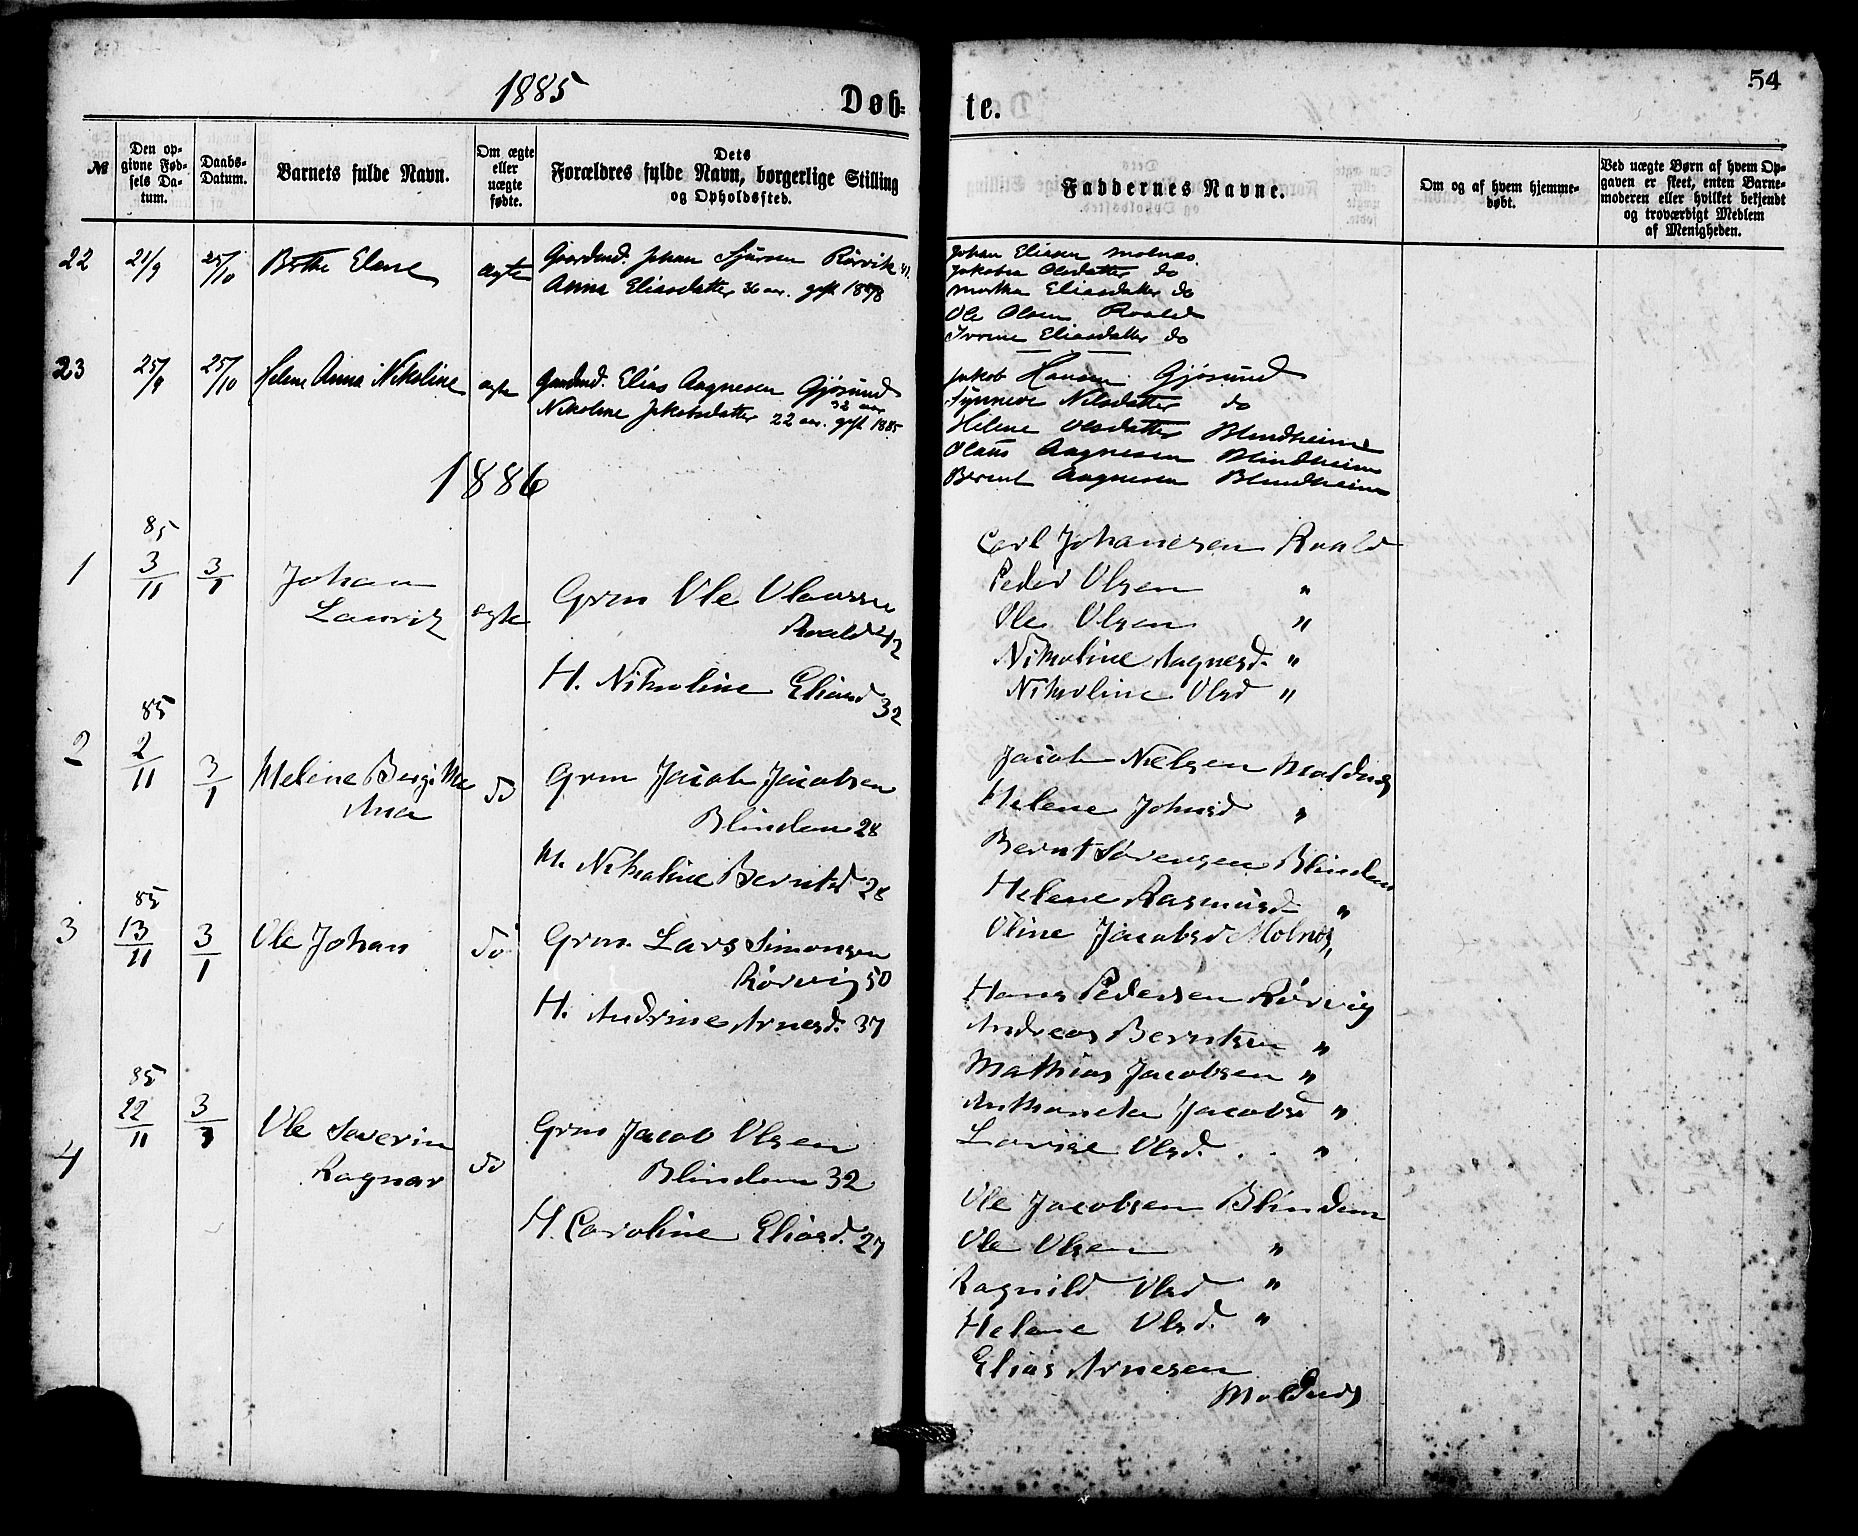 1885
Døb-
te.
54
№
Den op-
givne Fød-
sels Da-
tum.
Daabs-
Datum.
Barnets fulde Navn.
Om ægte
eller
uægte
fødte.
Dets
Forældres fulde Navn, borgerlige Stilling
og Opholdssted.
Faddernes Navne.
Om og af hvem hjemme-
døbt.
Ved uægte Børn af hvem Op-
gaven er skeet, enten Barne-
moderen eller hvilket bekjendt
og troværdigt Medlem
af Menigheden.
22
21/9
25/10
Elene
ægte
Gaardmd. Johan Sjursen Rørvik
Anna Eliasdatter 36 aar. gift 1878
Johan Eliasen Molnæs
Jakobea Olsdatter do
Martha Eliasdatter do
Ole Olsen Roald
Eliasdatter do
23
25/9
25/10
Helene Anna Nikoline
ægte
Gaardmd. Elias Aagnesen Gjøsund
32 aar
Nikoline Jakobsdatter 22 aar. gift 1885
Jakob Hansen Gjøsund
Synneve Nilsdatter do
Helene Olsdatter Blindheim
Olaus Aagnesen Blindheim
Bernt Aagnesen Blindheim
1886
1
85
3/11
3/1
Johan
Lauritz
ægte
Grm Ole Olausen
Roald 42
H. Nikoline Eliasd 32
Carl Johanesen Roald
Peder Olsen "
Ole Olsen "
Nikoline Aagnesd. "
Nikoline Olsd "
2
85
2/11
3/1
Ana
do
Grm Jacob Jacobsen
Blindem 28
Nikoline Berntsd 28
Jacob Nielsen Moldnæs
Helene Johnsd "
Bernt Sørensen Blindem
Helene Rasmusd "
Oline Jacobsd Molnæs
3
85
13/11
3/1
Ole Johan
do
Grm. Lars Simonsen
Rørvig 50
H. Andrine Arnesd. 37
Hans Pedersen Rørvig
Andreas Berntsen "
Mathias Jacobsen "
Jacobsd "
Lovise Olsd. "
4
85
22/11
3/1
Ole Severin
Ragnar
do
Grm Jacob Olsen
Blindem 32
H. Caroline Eliasd. 27
Ole Jacobsen Blindem
Ole Olsen "
Ragnild Olsd "
Helene Olsd. "
Elias Arnesen
Moldnæs